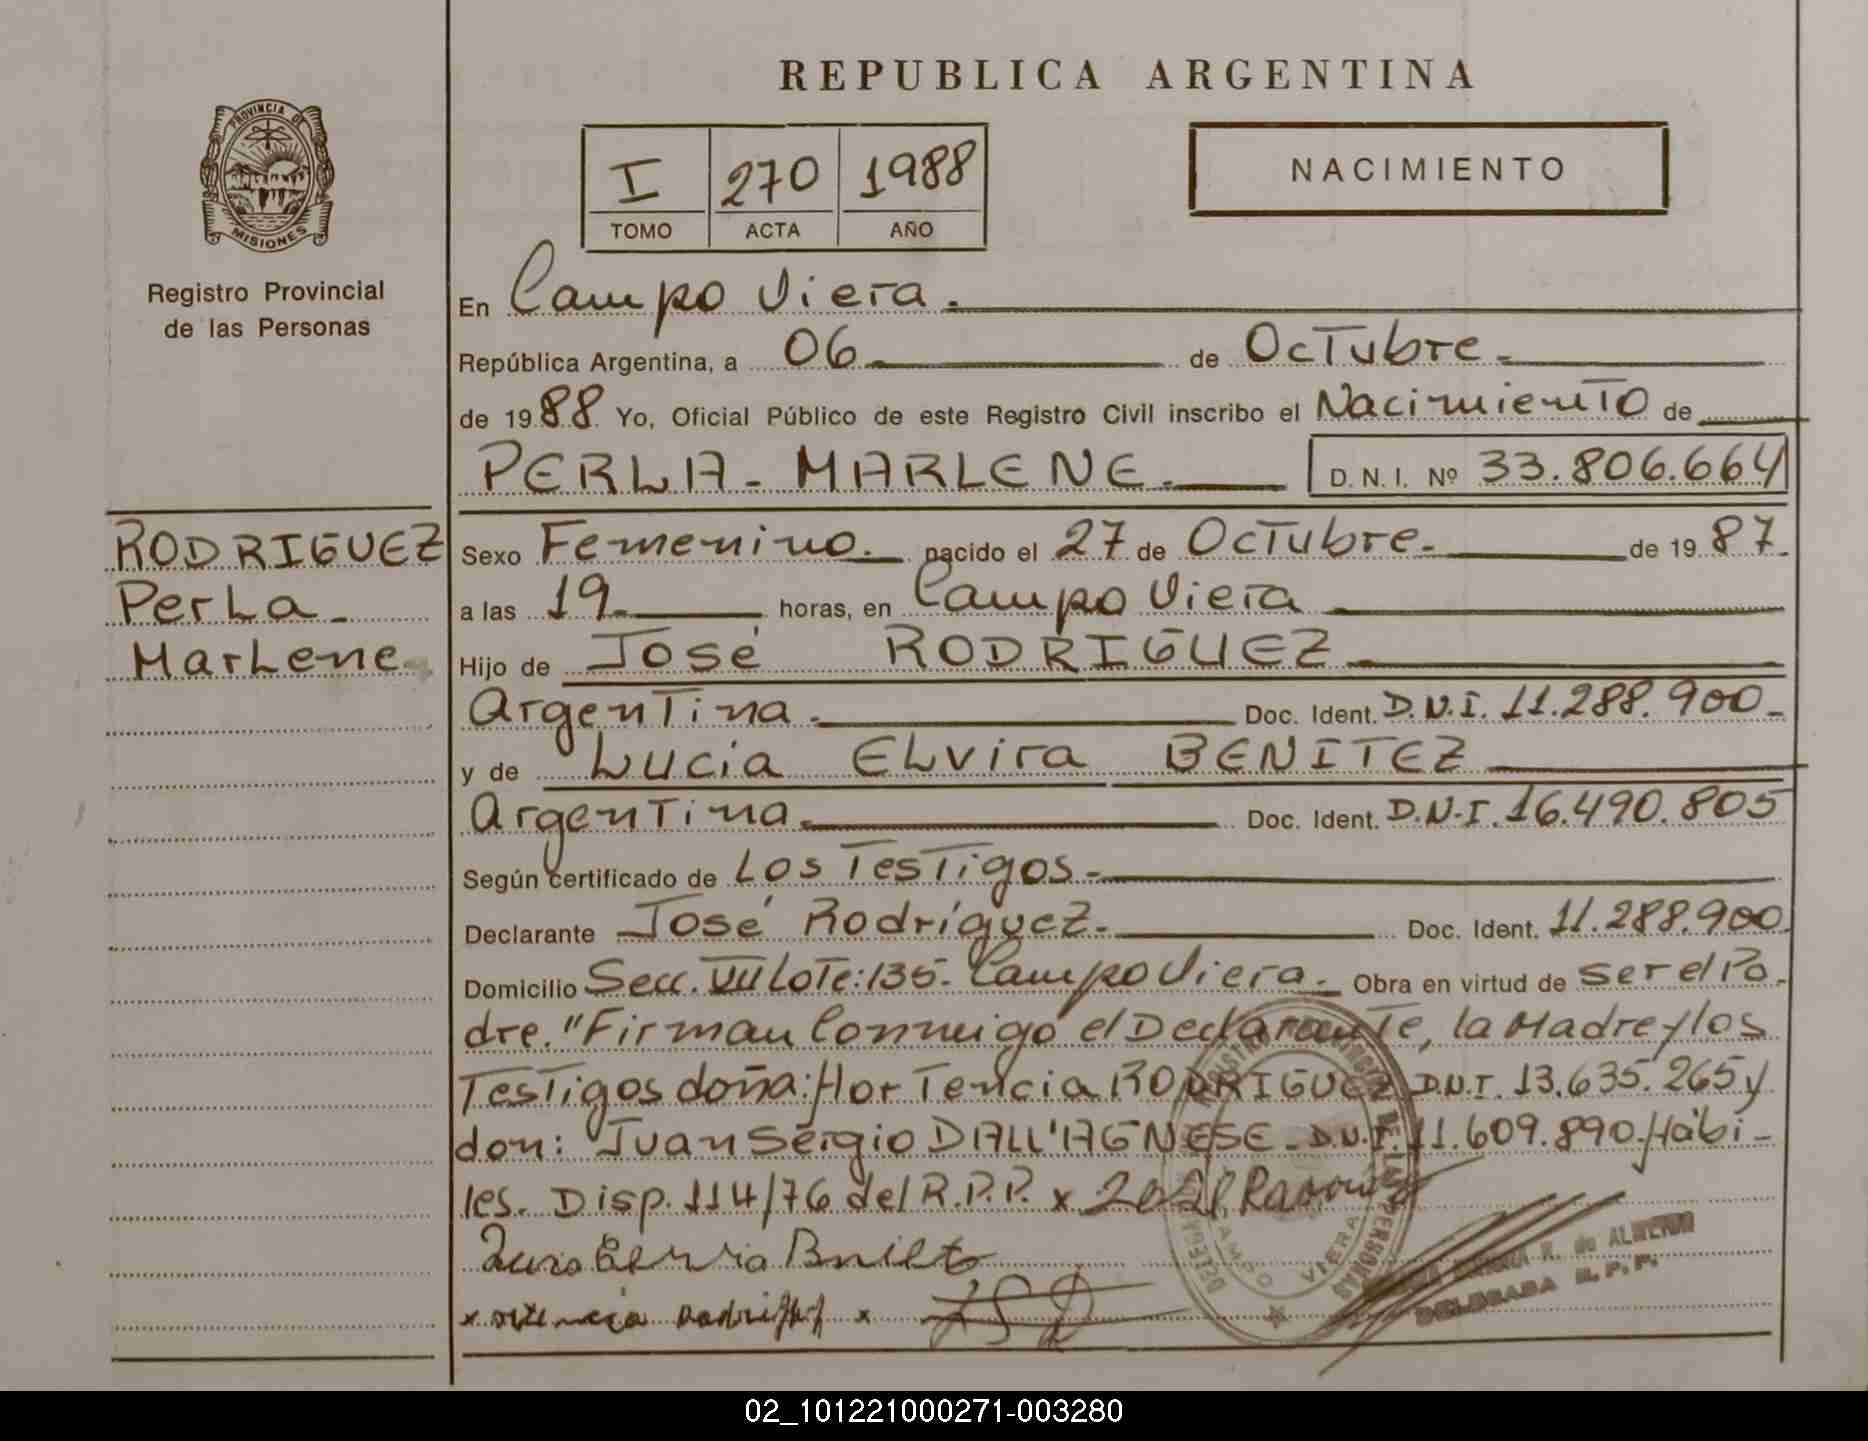 REPUBLICA ARGENTINA
PROVINCIA DE
MISIONES
Registro Provincial
de las Personas
I 270 1988
TOMO ACTA AÑO
NACIMIENTO
En Campo Viera.
República Argentina, a 06 de Octubre.
de 1988 Yo, Oficial Público de este Registro Civil inscribo el Nacimiento de
PERLA - MARLENE. D. N. I. Nº 33.806.664
RODRIGUEZ
Perla
Marlene
Sexo Femenino. nacido el 27 de Octubre. de 19 87.
a las 19 horas, en Campo Viera
Hijo de José RODRIGUEZ
Argentina. Doc. Ident. D.N.I. 11.288.900-
y de Lucia Elvira BENITEZ
Argentina. Doc. Ident. D.N.I. 16.490.805
Según certificado de Los Testigos -
Declarante José Rodríguez. Doc. Ident. 11.288.900
Domicilio Secc. VII Lote: 135- Campo Viera. Obra en virtud de ser el Pa-
dre. "Firman Conmigo el Declarante, la Madre y los
Testigos doña: Hortencia RODRIGUEZ D.N.I. 13.635.265 y
don: Juan Sergio DALL'AGNESE - D.N.I. 11.609.890. Hábi-
les. Disp. 114/76 del R.P.P. x
CAMPO VIERA
de ALMEIDA
DELEGADA R.P.P.
02_101221000271-003280